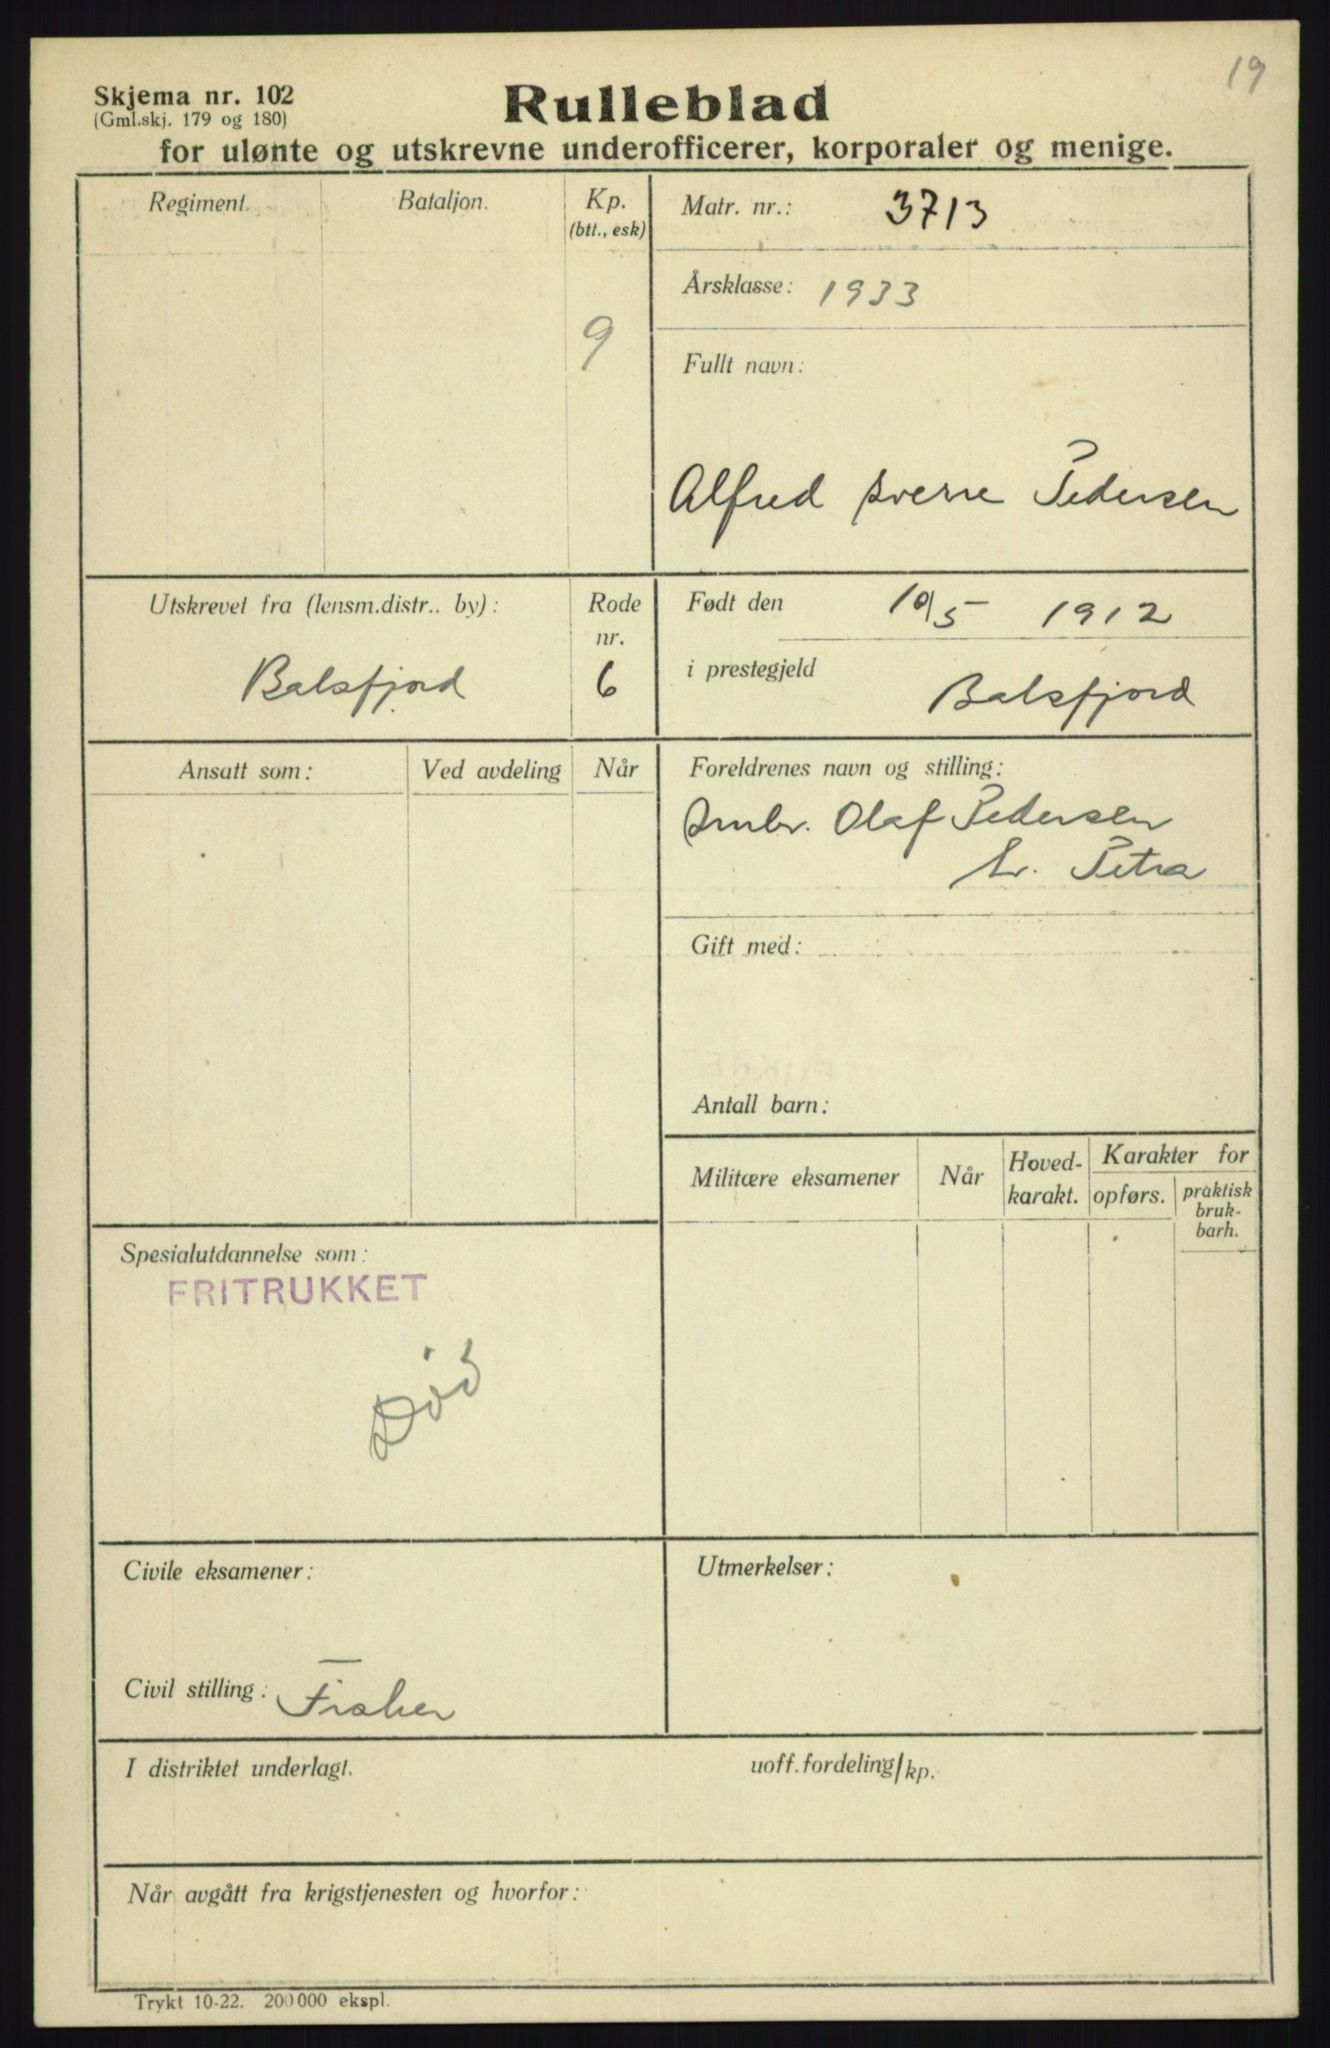 19
Skjema nr. 102
(Gml.skj. 179 og 180)
Rulleblad
for ulønte og utskrevne underofficerer, korporaler og menige.
Regiment.
Bataljon.
Kp.
(btl., esk)
9
Matr. nr.: 3713
Årsklasse: 1933
Fullt navn:
Alfred Sverre Pedersen
Utskrevet fra (lensm.distr.. by):
Balsfjord
Rode
nr.
6
Født den 10/5 1912
i prestegjeld Balsfjord
Ansatt som:
Ved avdeling
Når
Foreldrenes navn og stilling:
Smbr. Olaf Pedersen
h. Petra
Gift med:
Antall barn:
Militære eksamener
Når
Hoved-
karakt.
Karakter for
opførs.
praktisk
bruk-
barh.
Spesialutdannelse som:
FRITRUKKET
Død
Civile eksamener:
Utmerkelser:
Civil stilling: Fisker
I distriktet underlagt.
uoff. fordeling/kp.
Når avgått fra krigstjenesten og hvorfor:
Trykt 10-22. 200 000 ekspl.